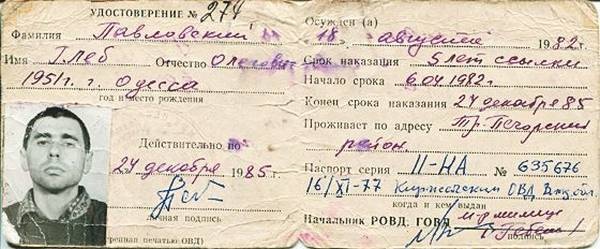 УДОСТОВЕРЕНИЕ № 274
Фамилия Павловский
Имя Глеб Отчество Олегович
1951 г. г. Одесса
год и место рождения
Действительно по
24 декабря 1985 г.
личная подпись
тренная печатью ОВД)
Осужден (а)
18 августа 1982 г.
Срок наказания 5 лет ссылки
Начало срока 6.04.1982 г.
Конец срока наказания 24 декабря 85
Проживает по адресу Тр. Печорский
район.
Паспорт серия II-НА № 635676
16/XI-77 ОВД
когда и кем выдан
Начальник РОВД, ГОВД м-р милиции
подпись